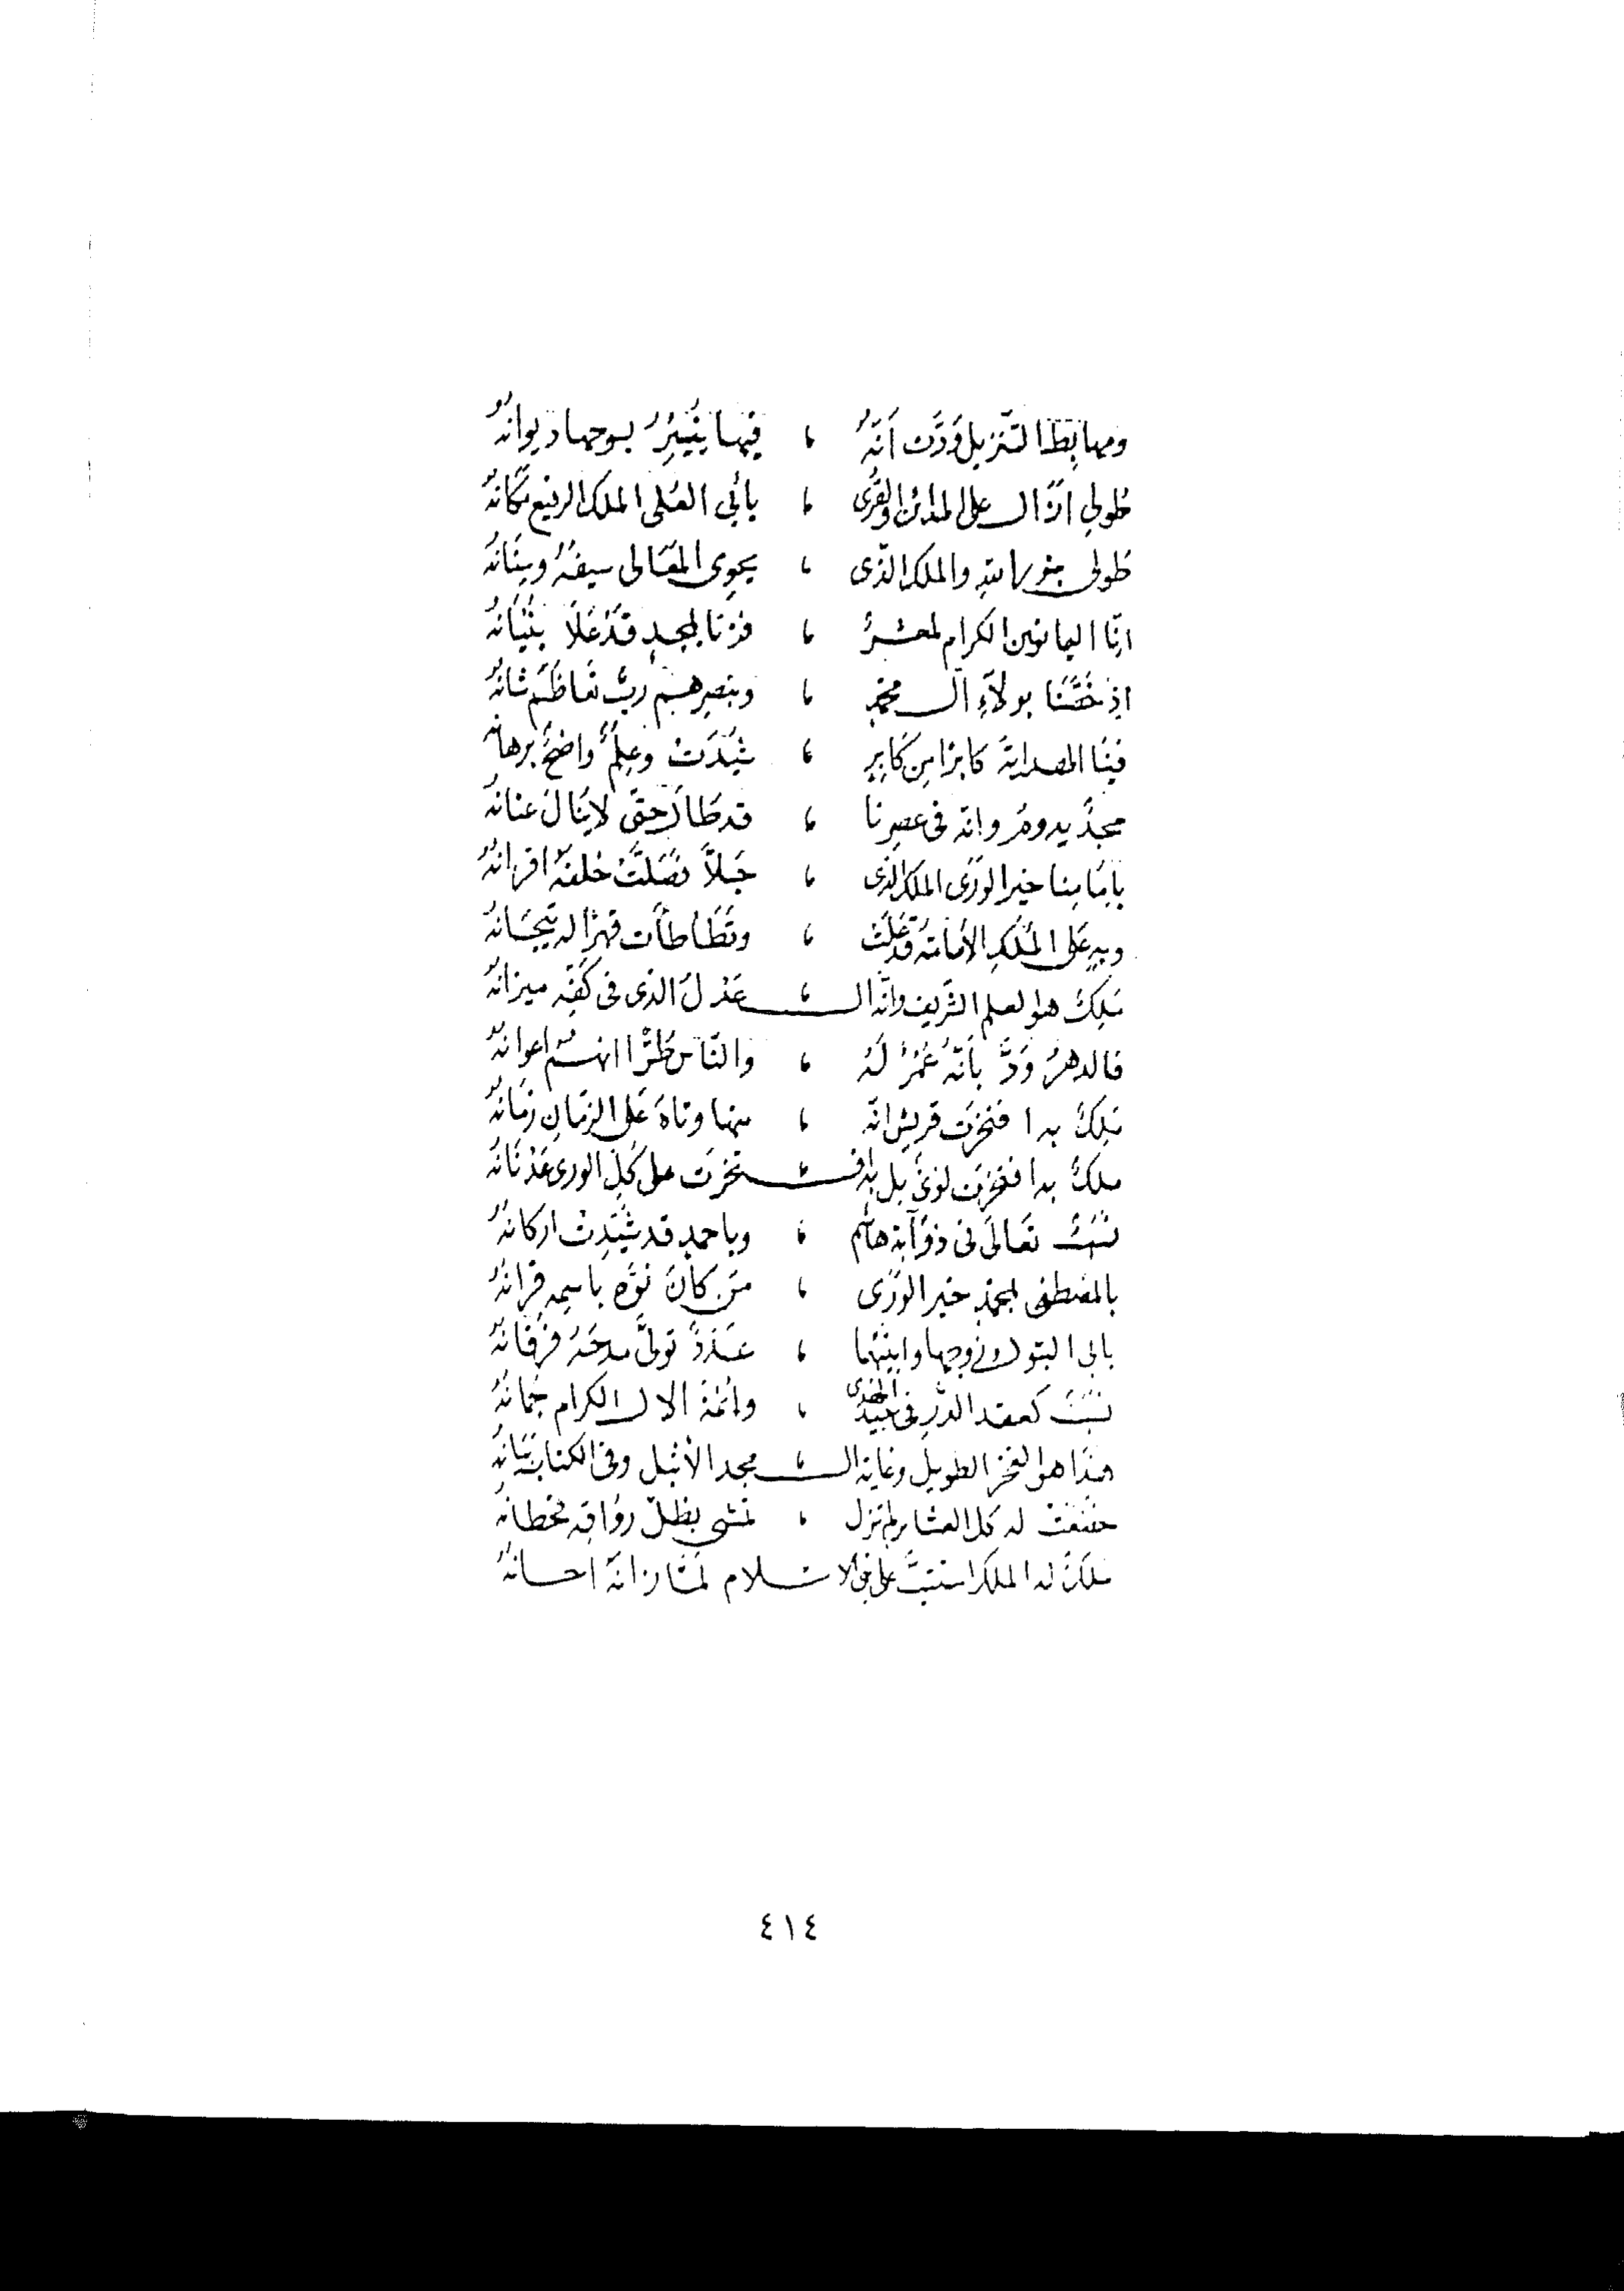 ومهابط التنزيل وَدَّت أنَّهُ ، فيها يُنيرُ بوجهها ديوانهُ
طُولي أزال على المدائن والقرى ، بأبي العُلى الملك الرفيع مَكانهُ
طُولى بنور الله والملك الذى ، يحوى المعَالى سيفهُ وسِنَانهُ
انّا اليمانون الكرام لمعشرٌ ، فزنا بمجدٍ قَدْ عَلاَ بُنْيَانهُ
اذ خَصَّنَا بولآءِ آل محمدٍ ، وبنصرِهم ربٌّ تعَاظَمَ شانهُ
فينَا الصدارة كابرًا مِن كَابِرٍ ، شُيِّدَتْ وعِلمٌ واضحٌ برهانه
مجدٌ يدومُ وانه فى عصرنا ، قد طَالَ حتّى لا يُنَالُ عنانهُ
بإمَامِنا خير الورَى الملك الذى ، جَبلاً تضَاءلَتْ خلفهُ اقرانهُ
وبهِ عَلى المُلكِ الأمَامَةُ قد عَلَتْ ، وتَطَأطأت قهرًا له تيجَانهُ
مَلِكٌ هو العلم الشريف وانه الـ ، ـعَدْلُ الذى فى كَفّه ميزانهُ
فالدهرُ وَدَّ بأنّهُ عُمْرٌ لَهُ ، والنّاس طُرًّا انهم اعوانهُ
مَلِكٌ بدا فتخرَت قريش انه ، منها وتاهَ عَلى الزمَانِ زمَانهُ
ملكٌ بدا ففخرت لوىٌّ بل به افـ ، ـتخرَت على كلِّ الورى عَدْنَانهُ
نسَبٌ تعَالَى فى ذؤآبة هاشم ، وباحمدٍ قد شُيِّدتْ اركانهُ
بالمصطفى محمدٍ خير الورَى ، مَن كانَ نوَّه باسمِه قرانهُ
بابى البتول وزوجها وابنَيْهما ، عَدَدٌ تولَّى مدحَهُ فرقانهُ
نسَبٌ كعقد الدُّر فى جيد الهُدى ، وائمّة الال الكرام جمانهُ
هذَا هو الفخر الطويل وغاية الـ ، ـمجد الأثيل وفى الكتاب بَيَانهُ
خضَعَتْ له كل العشاير لم تزل ، تمشى بظلّ رواقه قحطانهُ
مَلكٌ له الملك استتبَّ على بنى الاسلام لمّا زانهُ احسانهُ
٤١٤